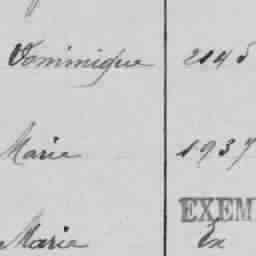 Dominique 2145
Marie 1937
EXEM
Marie Ex